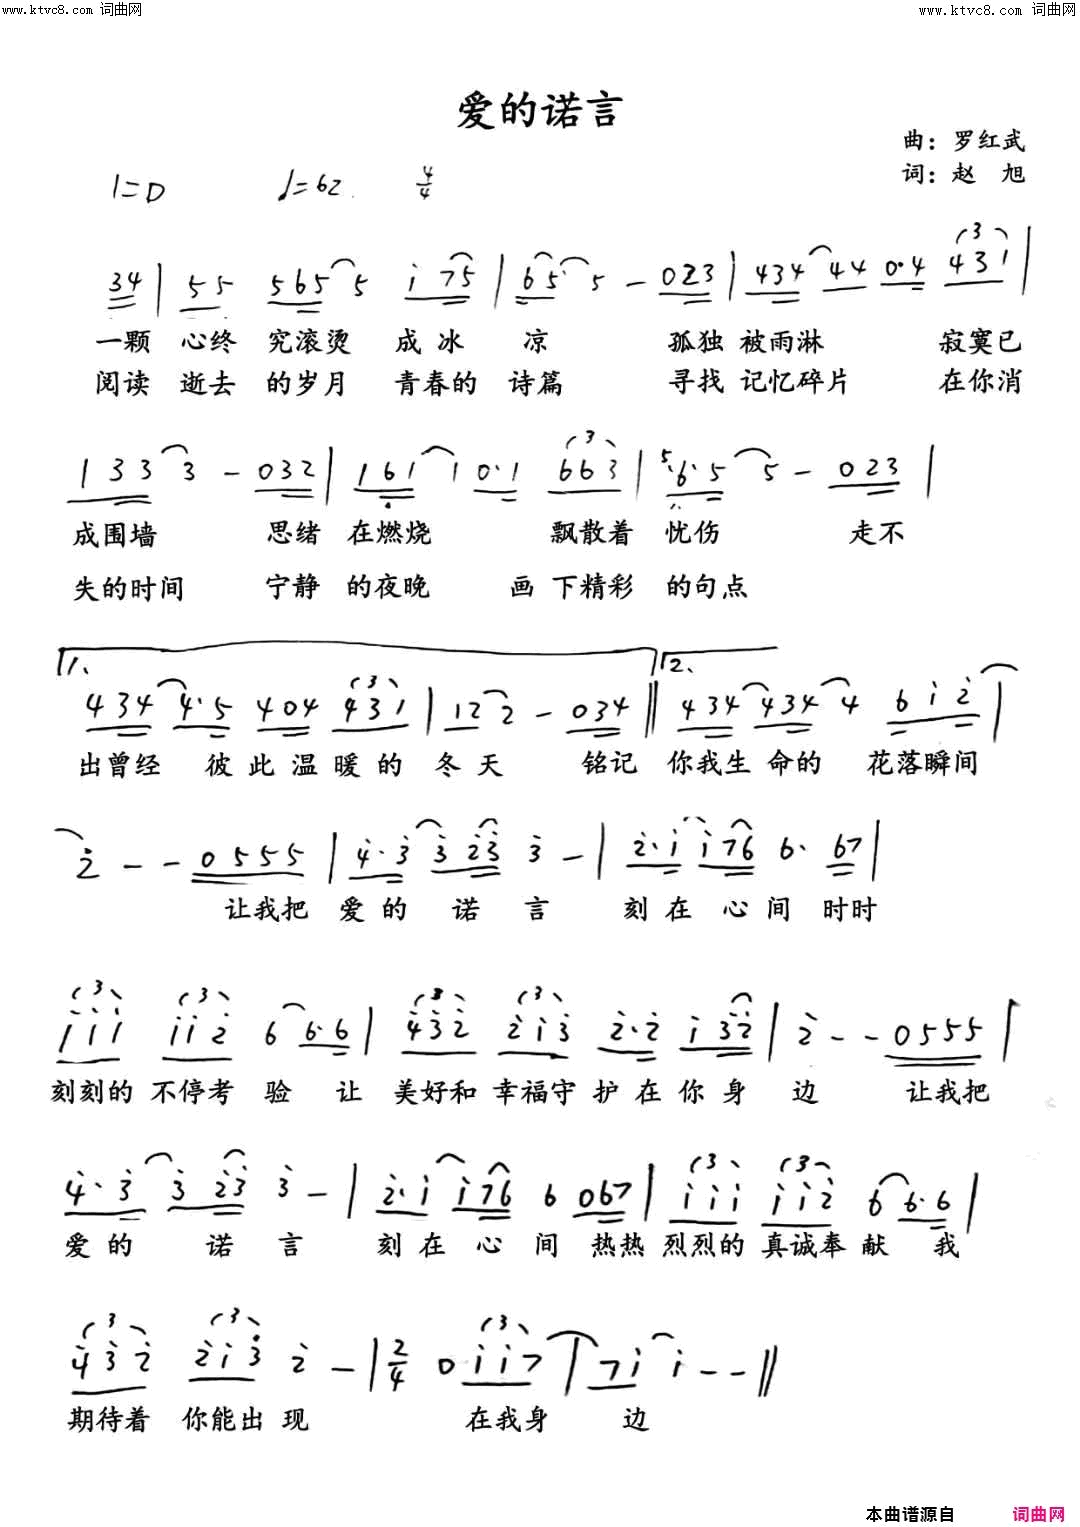 www.ktvc8.com 词曲网
www.ktvc8.com 词曲网
爱的诺言
曲：罗红武
词：赵 旭
1=D ♩=62 4/4
34 | 55 565 5 i 75 | 65· 5 - 023 | 434 44 0·4 431 |
一颗 心终 究滚烫 成 冰 凉 孤独 被雨淋 寂寞已
阅读 逝去 的岁月 青春的 诗篇 寻找 记忆碎片 在你消
133 3 - 032 | 161 1 0·1 663 | 5 6·5 5 - 023 |
成围墙 思绪 在燃烧 飘散着 忧伤 走不
失的时间 宁静 的夜晚 画 下精彩 的句点
1. 2.
434 4·5 404 431 | 122 - 034 ‖ 434 434 4 6i2 |
出曾经 彼此温暖的 冬天 铭记 你我生命的 花落瞬间
2 - - 0555 | 4·3 3 23 3 - | 2·i i76 6· 67 |
让我把 爱的 诺 言 刻在心间时时
iii ii2 6 6·6 | 432 2i3 2·2 i32 | 2 - - 0555 |
刻刻的 不停考 验 让 美好和 幸福守 护在你身 边 让我把
4·3 3 23 3 - | 2·i i76 6 067 | iii ii2 6 6·6 |
爱的 诺 言 刻在心间 热热 烈烈的 真诚奉 献 我
432 2i3 2 - | 2/4 0 ii7 | 7i i - - ‖
期待着 你能出 现 在我身 边
本曲谱源自 词曲网